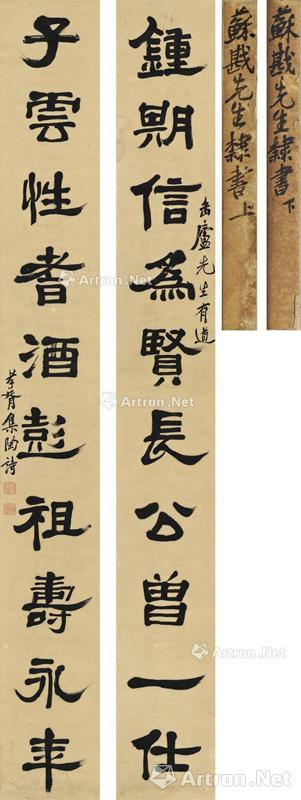 鍾期信為賢長公曾一仕
缶廬先生有道
子雲性耆酒彭祖壽永年
孝胥集陶詩
蘇戡先生隸書上
蘇戡先生隸書下
Artron.Net
Artron.Net
Artron.Net
Artron.Net
Artron.Net